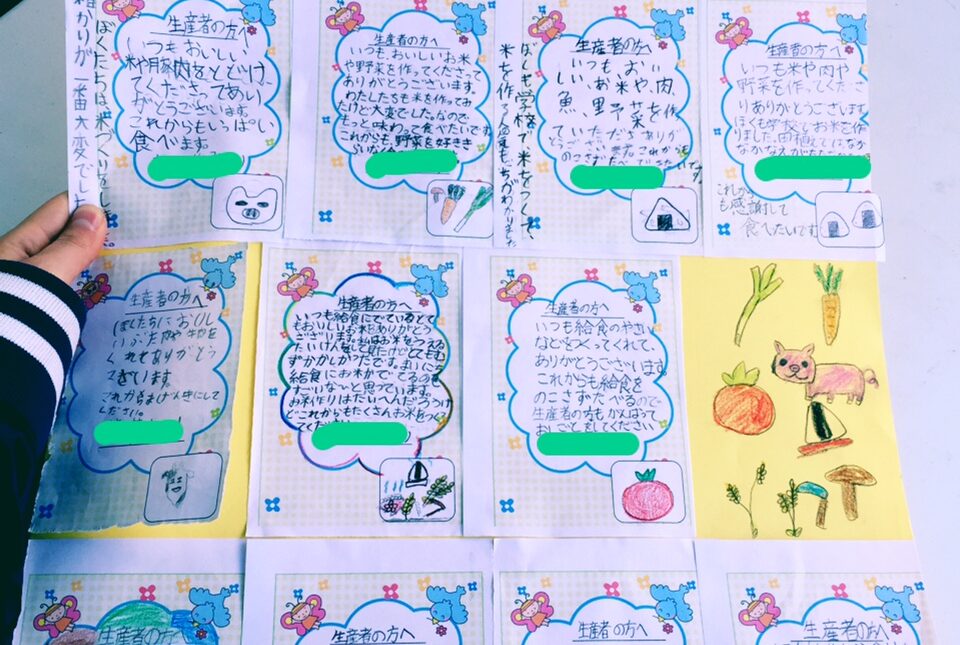 生産者の方へ
いつもおいしい
米や豚肉をとどけ
てくださってあり
がとうございます。
これからもいっぱい
食べます。
ぼくたちは米づくりをしま
が一番大変でした
生産者の方へ
いつも、おいしいお米
や野菜を作ってくださって
ありがとうございます。
わたしたちも米を作ってみ
たけど大変でした。なので、
もっと味わって食べたいです
これからも、野菜を好きき
生産者の方へ
いつも、おい
しい、お米や、肉、
魚、野菜を作っ
ていただきありが
とうございます。これからも
のこさずたべ
ぼくも学校で米をつくって、
米を作る
わかりました
生産者の方へ
いつも米や肉や
野菜を作ってくださ
りありがとうございます
ぼくも学校でお米を作
りました。田植えでは
なかなか
これから
も感謝して
食べたいです
生産者の方へ
ぼくたちにおいし
いぶた肉や牛肉を
くれてありがとう
ございます。
これからもげんきにして
ください。
生産者の方へ
いつも給食にでているとて
もおいしいお米ありがとう
ございます。私はお米をうえる
たいけん
ずかしかったです。まいにち
給食にお米がでてくるの
すごいなと思っています。
お米作りはたいへんだろうけ
どこれからもたくさんお米をつくっ
てくださ
生産者の方へ
いつも給食のやさい
などをつくってくれて
ありがとうございます。
これからも給食を
のこさずたべるので
生産者の方もがんばって
おしごとをしてください
生産者の方へ
生産者の方へ
生産者の方へ
生産者の方へ